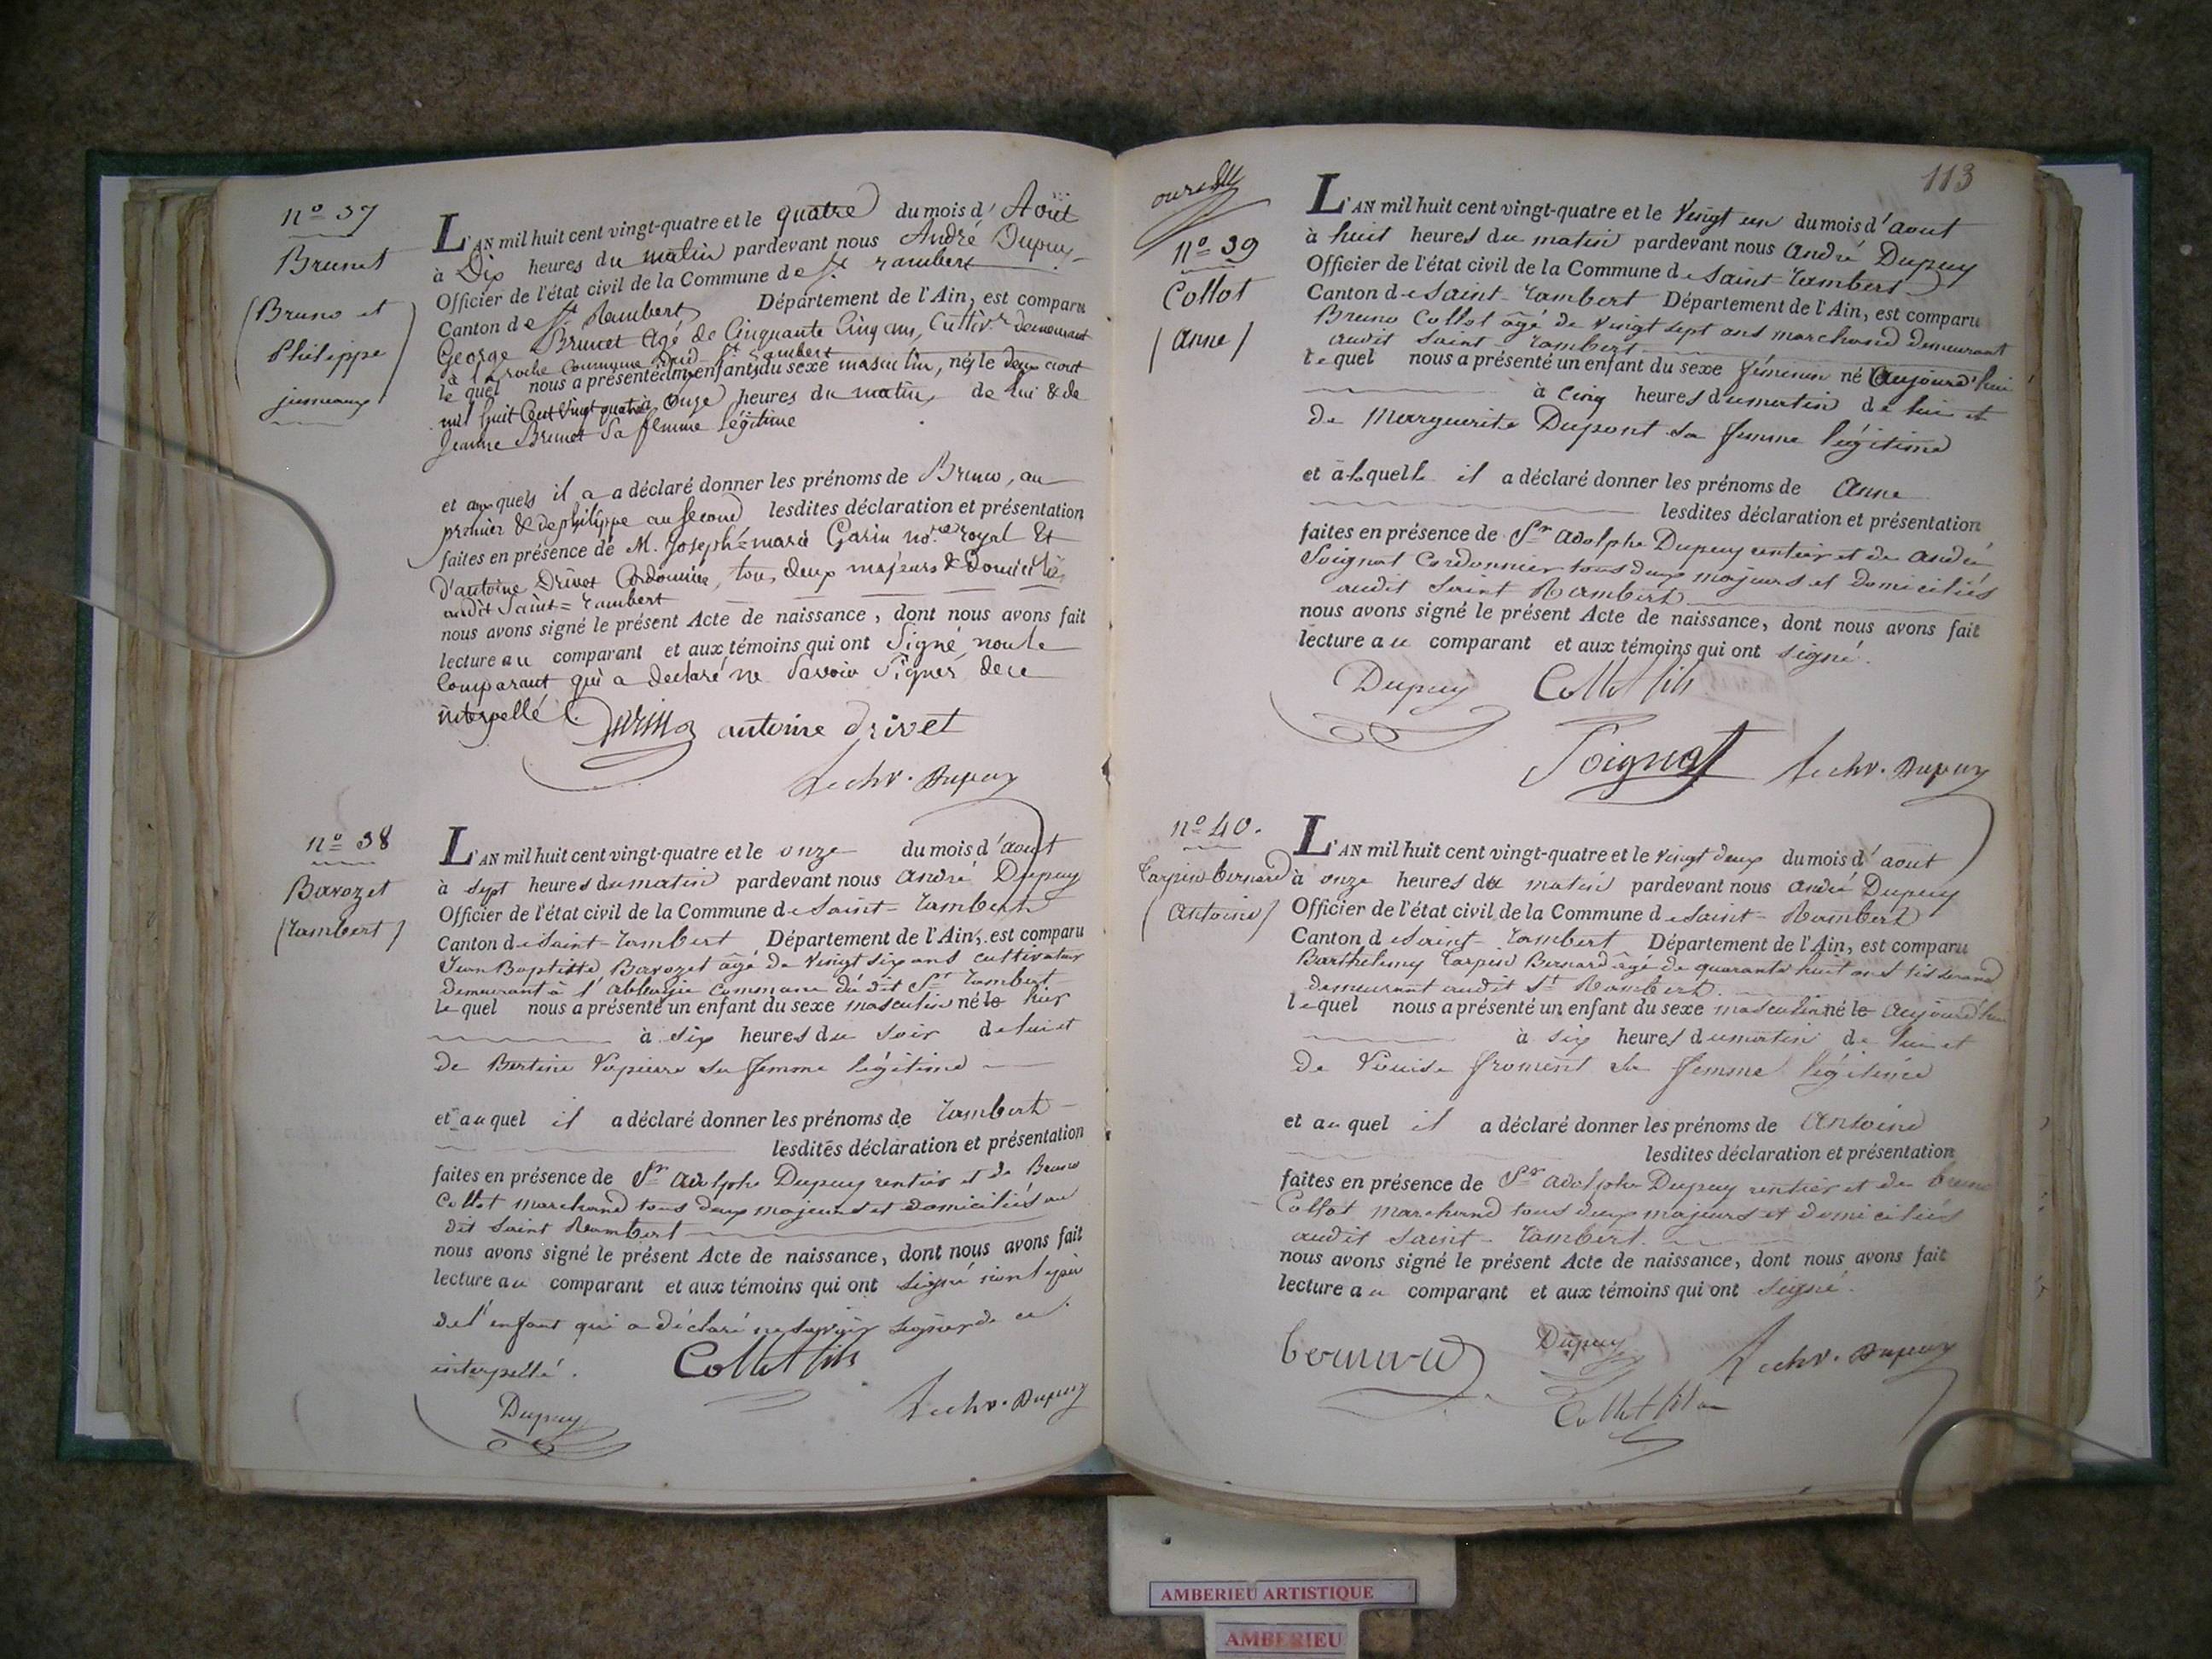 nº 37
Brunet
(Bruno et
Philippe)
jumeaux
L'AN mil huit cent vingt-quatre et le quatre du mois d'Août
à Dix heures du matin pardevant nous André Dupuy
Officier de l'état civil de la Commune de St rambert
Canton de St Rambert Département de l'Ain, est comparu
George Brunet Agé de Cinquante Cinq ans, Cultiv.r demeurant
à la roche Commune dud. St Rambert
le quel nous a présenté deux enfants du sexe masculin, nés le deux aout
mil huit Cent Vingt quatre à onze heures du matin de lui & de
Jeanne Brunet Sa femme légitime
et aux quels il a a déclaré donner les prénoms de Bruno, au
premier & de philippe au Second lesdites déclaration et présentation
faites en présence de M. Joseph=marie Garin no.re royal Et
d'antoine Drivet Cordonnier, tous deux majeurs & Domiciliés
audit Saint=rambert
nous avons signé le présent Acte de naissance, dont nous avons fait
lecture au comparant et aux témoins qui ont Signé, non le
Comparant qui a declaré ne Savoir Signer de ce
interpellé.
Garin antoine drivet
Dupuy
nº 38
Bavozet
(rambert)
L'AN mil huit cent vingt-quatre et le onze du mois d'aout
à sept heures du matin pardevant nous andré Dupuy
Officier de l'état civil de la Commune de Saint-rambert
Canton de Saint-rambert Département de l'Ain, est comparu
Jean Baptiste Bavozet âgé de Vingt six ans cultivateur
demeurant à l'abbaye commune du dit St rambert
le quel nous a présenté un enfant du sexe masculin né le hier
à six heures du soir de lui et
de sa femme légitime
et au quel il a déclaré donner les prénoms de rambert
lesdites déclaration et présentation
faites en présence de Sr adolphe Dupuy rentier et de Bruno
Collot marchand tous deux majeurs et domiciliés au
dit Saint Rambert
nous avons signé le présent Acte de naissance, dont nous avons fait
lecture au comparant et aux témoins qui ont signé non le père
de l'enfant qui a déclaré ne savoir signer de ce
interpellé.
Collot fils
Dupuy
Dupuy
113
nº 39
Collot
(Anne)
L'AN mil huit cent vingt-quatre et le Vingt un du mois d'aout
à huit heures du matin pardevant nous andré Dupuy
Officier de l'état civil de la Commune de Saint-rambert
Canton de Saint-rambert Département de l'Ain, est comparu
Bruno Collot âgé de Vingt sept ans marchand demeurant
audit Saint-rambert
le quel nous a présenté un enfant du sexe féminin né aujourd'hui
à cinq heures du matin de lui et
de Marguerite Dupont sa femme légitime
et à laquelle il a déclaré donner les prénoms de anne
lesdites déclaration et présentation
faites en présence de Sr adolphe Dupuy rentier et de andré
Soignat Cordonnier tous deux majeurs et domiciliés
audit Saint Rambert
nous avons signé le présent Acte de naissance, dont nous avons fait
lecture au comparant et aux témoins qui ont signé.
Dupuy Collot fils
Soignat Dupuy
nº 40.
Carpin bernard
(Antoine)
L'AN mil huit cent vingt-quatre et le Vingt deux du mois d'aout
à onze heures du matin pardevant nous andré Dupuy
Officier de l'état civil de la Commune de Saint-Rambert
Canton de Saint-rambert Département de l'Ain, est comparu
Barthelemy Carpin Bernard âgé de quarante huit ans tisserand
demeurant audit St Rambert.
le quel nous a présenté un enfant du sexe masculin né le aujourd'hui
à six heures du matin de lui et
de Louise froment sa femme légitime
et au quel il a déclaré donner les prénoms de Antoine
lesdites déclaration et présentation
faites en présence de Sr adolphe Dupuy rentier et de bruno
Collot marchand tous deux majeurs et domiciliés
audit Saint-rambert.
nous avons signé le présent Acte de naissance, dont nous avons fait
lecture au comparant et aux témoins qui ont signé.
bernard Dupuy Dupuy
Collot fils
AMBERIEU ARTISTIQUE
AMBERIEU